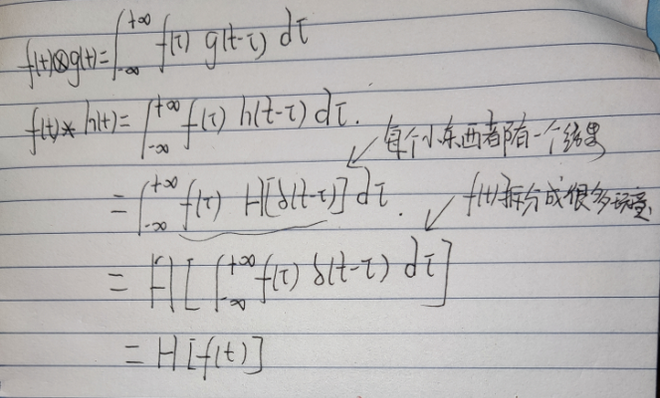 f(t)⊗g(t)=∫_{-∞}^{+∞} f(τ) g(t-τ) dτ
f(t)* h(t)= ∫_{-∞}^{+∞} f(τ) h(t-τ) dτ.
每个小东西都有一个结果
= ∫_{-∞}^{+∞} f(τ) H[δ(t-τ)] dτ.
f(t)拆分成很多
= H[ ∫_{-∞}^{+∞} f(τ) δ(t-τ) dτ ]
= H[f(t)]